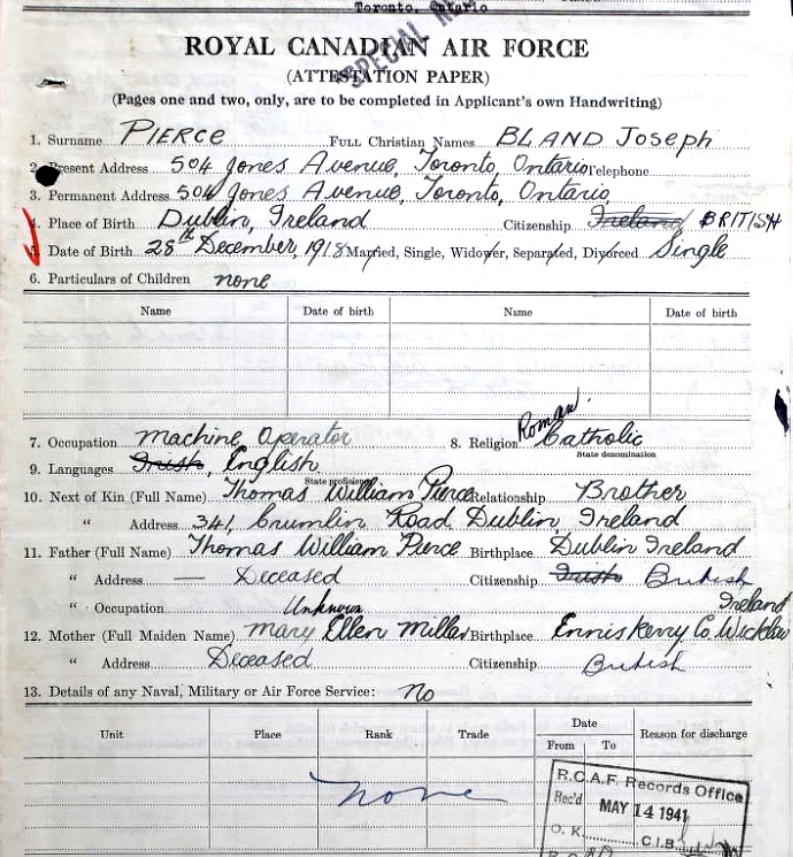 Toronto, Ontario
SPECIAL
ROYAL CANADIAN AIR FORCE
(ATTESTATION PAPER)
(Pages one and two, only, are to be completed in Applicant's own Handwriting)
1. Surname PIERCE Full Christian Names BLAND Joseph
2. Present Address 504 Jones Avenue, Toronto, Ontario Telephone
3. Permanent Address 504 Jones Avenue, Toronto, Ontario
4. Place of Birth Dublin, Ireland Citizenship Ireland BRITISH
5. Date of Birth 28th December, 1918 Married, Single, Widower, Separated, Divorced Single
6. Particulars of Children none
Name Date of birth Name Date of birth
7. Occupation Machine Operator 8. Religion Roman Catholic
State denomination
9. Languages Irish, English
State proficiency
10. Next of Kin (Full Name) Thomas William Pierce Relationship Brother
" Address 341, Crumlin Road Dublin, Ireland
11. Father (Full Name) Thomas William Pierce Birthplace Dublin Ireland
" Address — Deceased Citizenship Irish British
" Occupation Unknown Ireland
12. Mother (Full Maiden Name) Mary Ellen Millar Birthplace Enniskerry Co. Wicklow
" Address Deceased Citizenship British
13. Details of any Naval, Military or Air Force Service: No
Unit Place Rank Trade Date Reason for discharge
From To
none
R.C.A.F. Records Office
Rec'd MAY 14 1941
O. K. C.I.B.